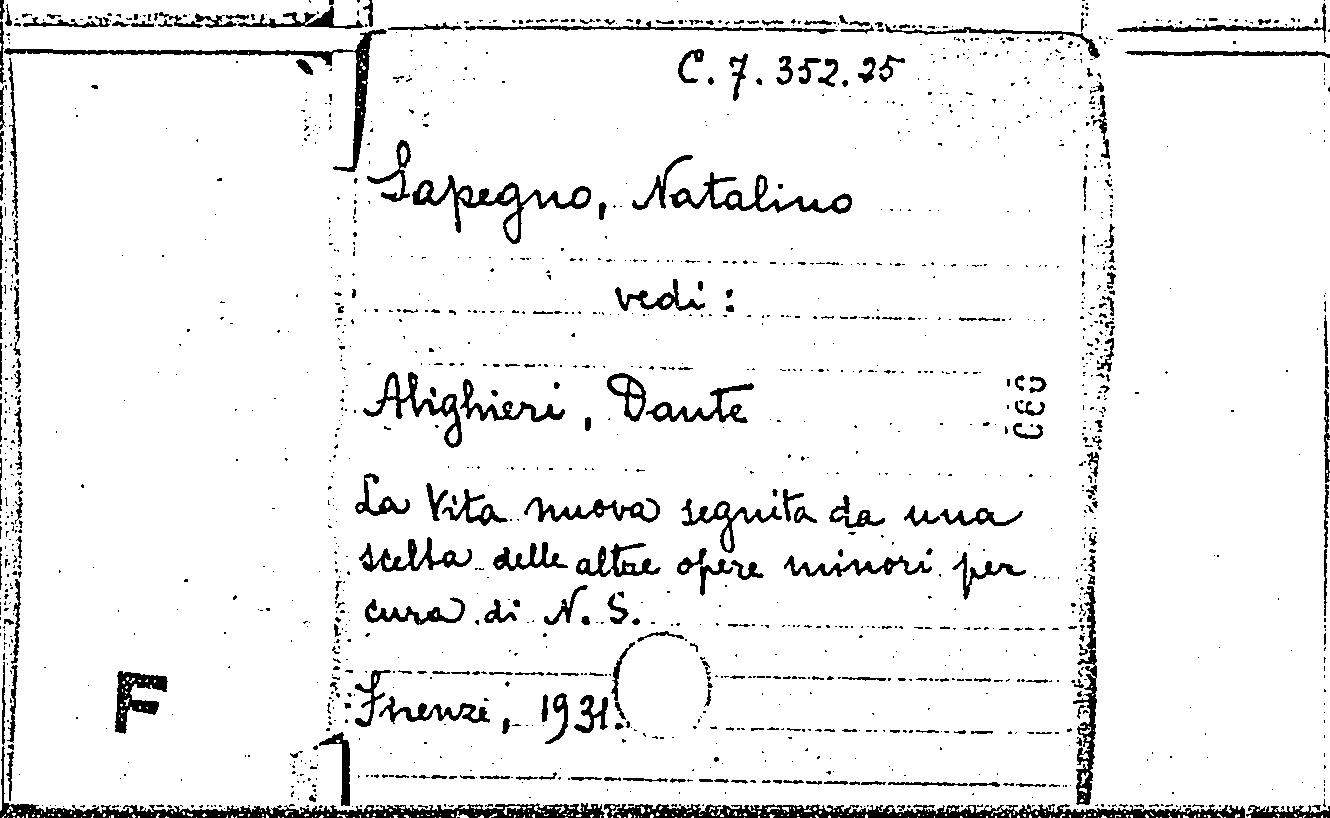 C. 7. 352. 25
Sapegno, Natalino
vedi :
Alighieri, Dante
La Vita nuova seguita da una
scelta delle altre opere minori per
cura di N. S.
Firenze, 1931.
F